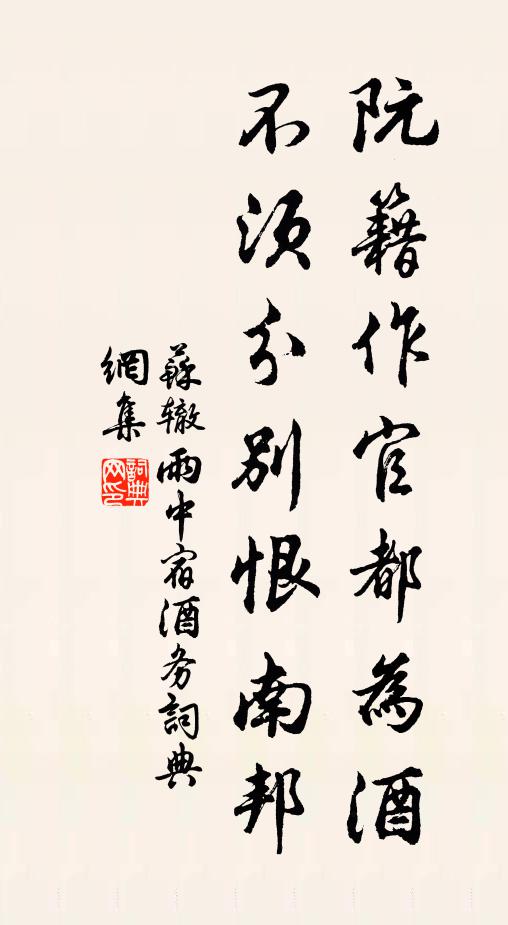 阮籍作官都為酒
不須分別恨南邦
蘇轍雨中宿酒务詞典
網集
詞典
网印